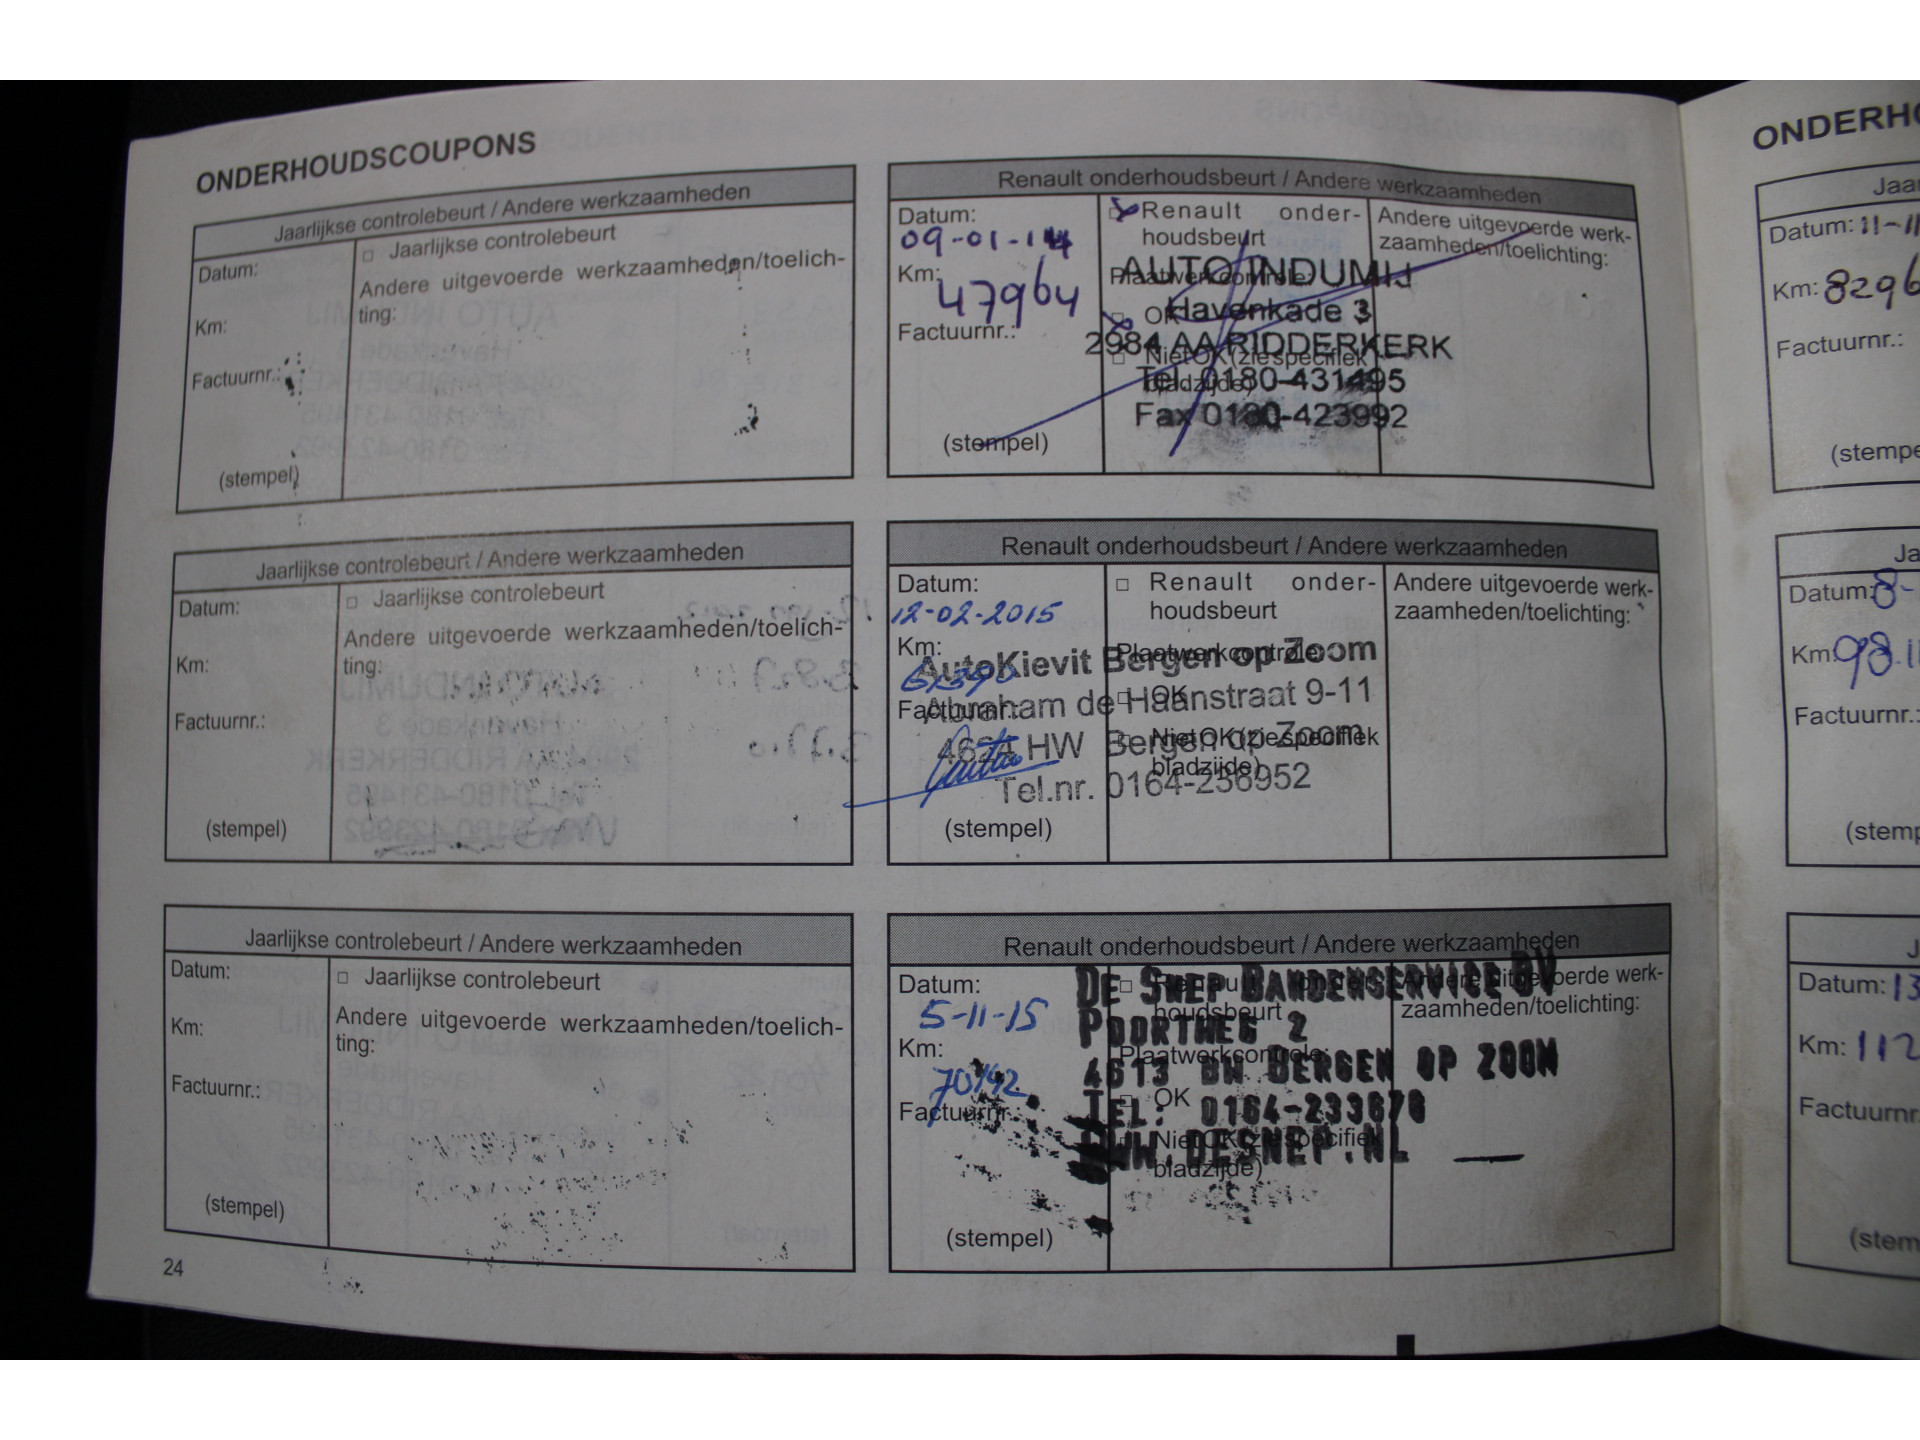 ONDERHOUDSCOUPONS
Jaarlijkse controlebeurt / Andere werkzaamheden
Datum:
□ Jaarlijkse controlebeurt
Andere uitgevoerde werkzaamheden/toelich-
ting:
Km:
Factuurnr.:
(stempel)
Renault onderhoudsbeurt / Andere werkzaamheden
Datum:
09-01-14
Km:
47964
Factuurnr.:
(stempel)
Renault onder-
houdsbeurt
Plaatwerkcontrole:
OK
Niet OK (zie specifiek
bladzijde)
Andere uitgevoerde werk-
zaamheden/toelichting:
AUTO INDUMIJ
Havenkade 3
2984 AA RIDDERKERK
Tel. 0180-431495
Fax 0180-423992
Jaarlijkse controlebeurt / Andere werkzaamheden
Datum:
□ Jaarlijkse controlebeurt
Andere uitgevoerde werkzaamheden/toelich-
ting:
Km:
Factuurnr.:
(stempel)
Renault onderhoudsbeurt / Andere werkzaamheden
Datum:
12-02-2015
Km:
Factuurnr.:
(stempel)
□ Renault onder-
houdsbeurt
Plaatwerkcontrole:
□ OK
□ Niet OK (zie specifiek
bladzijde)
Andere uitgevoerde werk-
zaamheden/toelichting:
AutoKievit Bergen op Zoom
Abraham de Haanstraat 9-11
4624 HW Bergen op Zoom
Tel.nr. 0164-236952
Jaarlijkse controlebeurt / Andere werkzaamheden
Datum:
□ Jaarlijkse controlebeurt
Andere uitgevoerde werkzaamheden/toelich-
ting:
Km:
Factuurnr.:
(stempel)
Renault onderhoudsbeurt / Andere werkzaamheden
Datum:
5-11-15
Km:
70142
Factuurnr.:
(stempel)
□ Renault onder-
houdsbeurt
Plaatwerkcontrole:
□ OK
□ Niet OK (zie specifiek
bladzijde)
Andere uitgevoerde werk-
zaamheden/toelichting:
DE SNEP BANDENSERVICE BV
POORTWEG 2
4613 BW BERGEN OP ZOOM
TEL: 0164-233678
WWW.DESNEP.NL
24
ONDERHO
Jaa
Datum: 11-11
Km: 8296
Factuurnr.:
(stempe
Ja
Datum: 8-
Km: 98.11
Factuurnr.:
(stemp
J
Datum: 13
Km: 112
Factuurnr
(stem